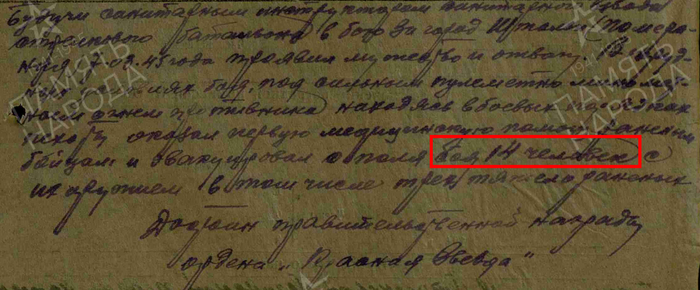 Будучи санитарным инструктором санитарного взвода
стрелкового батальона в бою за город Штольп (Помера-
ния) 7.03.45 года проявил мужество и отвагу. В труд-
ных условиях боя, под сильным пулеметно минометным
огнем противника находясь в боевых порядках
пехоты оказал первую медицинскую помощь раненым
бойцам и эвакуировал с поля боя 14 человек с
их оружием в том числе трех тяжело раненых
Достоин правительственной награды
ордена „Красная Звезда"
ПАМЯТЬ
НАРОДА
ПАМЯТЬ
НАРОДА